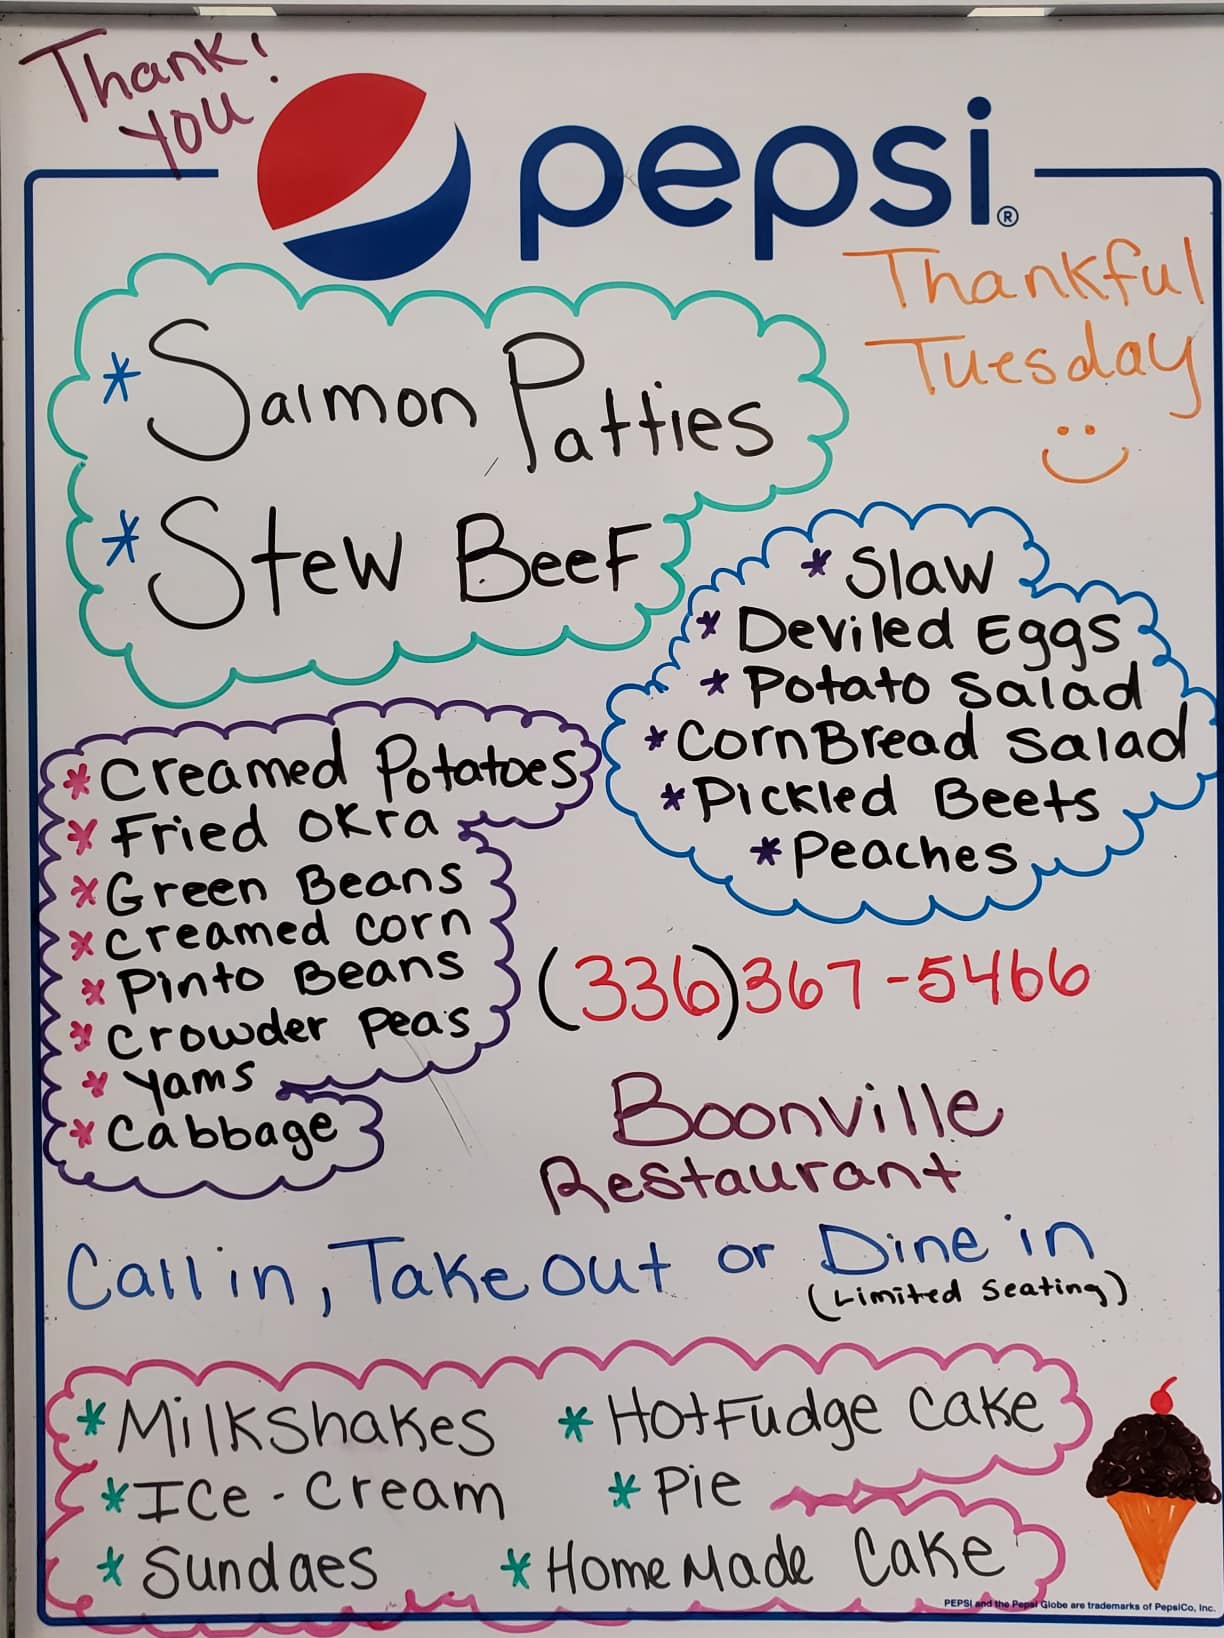 Thank
You!
pepsi®
Thankful
Tuesday
* Salmon Patties
* Stew Beef
* Slaw
* Deviled Eggs
* Potato Salad
* CornBread Salad
* Pickled Beets
* Peaches
* Creamed Potatoes
* Fried Okra
* Green Beans
* Creamed Corn
* Pinto Beans
* Crowder Peas
* Yams
* Cabbage
(336)367-5466
Boonville
Restaurant
Call in, Take out or Dine in
(Limited Seating)
* Milkshakes * Hot Fudge Cake
* Ice-Cream * Pie
* Sundaes * Home Made Cake
PEPSI and the Pepsi Globe are trademarks of PepsiCo, Inc.